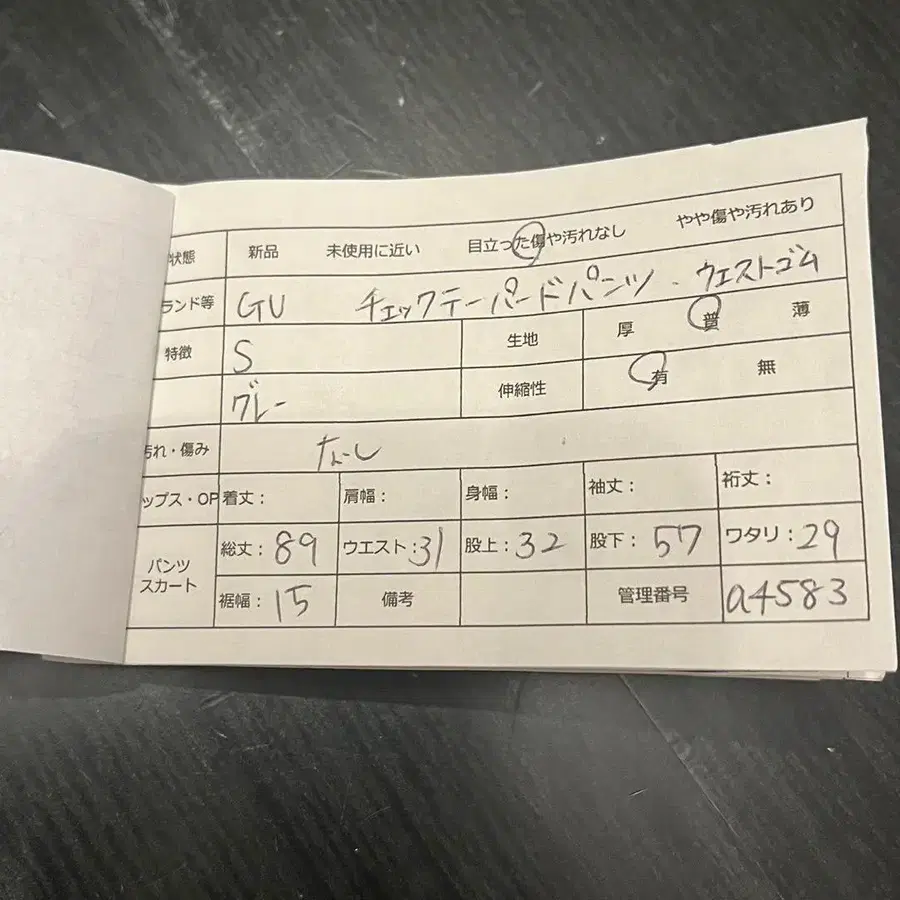 状態 新品 未使用に近い 目立った傷や汚れなし やや傷や汚れあり
ランド等 GU チェックテーパードパンツ . ウエストゴム
特徴 S 生地 厚 普 薄
グレー 伸縮性 有 無
汚れ・傷み なし
ップス・OP 着丈: 肩幅: 身幅: 袖丈: 裄丈:
パンツ スカート 総丈:89 ウエスト:31 股上:32 股下:57 ワタリ:29
裾幅:15 備考 管理番号 a4583